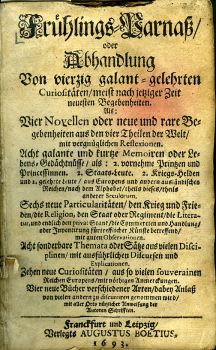 Frühlings-Parnaß/
oder
Abhandlung
Von vierzig galant-gelehrten
Curiositäten/ meist nach jetziger Zeit
neuesten Begebenheiten.
Als:
Vier Novellen oder neue und rare Be-
gebenheiten aus den vier Theilen der Welt/
mit vergnüglichen Reflexionen.
Acht galante und kurtze Memoiren oder Le-
bens-Gedächtnüsse/ als: 2. vornehme Printzen und
Princeßinnen. 2. Staats-Leute. 2. Kriegs-Helden
und 2. gelehrte Leute/ aus Europens und andern
Reichen/ nach dem Alphabet/ theils dieses/ theils
anderer Seculorum.
Sechs neue Particularitäten/ den Krieg und Frie-
den/ die Religion, den Staat oder Regiment/ die Litera-
tur, und endlich den privat Staat/ die Commercien und Handlung/
oder künstlicher Künste betreffend/
mit guten Observationen.
Acht sonderbare Themata oder Sätze aus vielen Disci-
plinen/ mit ausführlichen Discursen und
Explicationen.
Zehen neue Curiositäten/ aus so vielen souverainen
Reichen Europens/ mit nöthigen Anmerckungen.
Vier neue Bücher verschiedener Arten/ dabey Anlaß
von vielen andern zu discuriren genommen wird/
mit aller Orts nützlicher Anweisung der
Autoren Schrifften.
Franckfurt und Leipzig/
Verlegts AUGUSTUS BOETIUS,
1693.